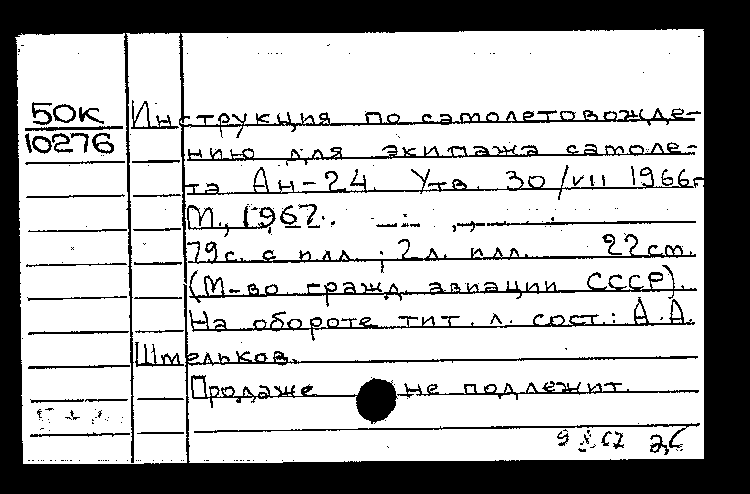 50К
10276
Инструкция по самолетовожде-
нию для экипажа самоле-
та Ан-24. Утв. 30/VII 1966г.
М., 1967.
79с. с илл.; 2л. илл. 22см.
(М-во гражд. авиации СССР).
На обороте тит. л. сост.: А.А.
Штельков.
Продаже не подлежит.